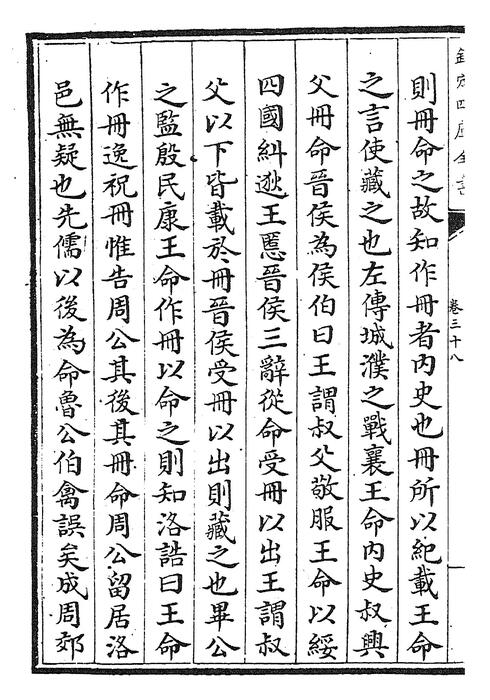 欽定四庫全書
卷三十八
則冊命之故知作冊者内史也冊所以紀載王命
之言使藏之也左傳城濮之戰襄王命内史叔興
父冊命晉侯為侯伯曰王謂叔父敬服王命以綏
四國糾逖王慝晉侯三辭從命受冊以出王謂叔
父以下皆載於冊晉侯受冊以出則藏之也畢公
之監殷民康王命作冊以命之則知洛誥曰王命
作冊逸祝冊惟告周公其後其冊命周公留居洛
邑無疑也先儒以後為命魯公伯禽誤矣成周郊